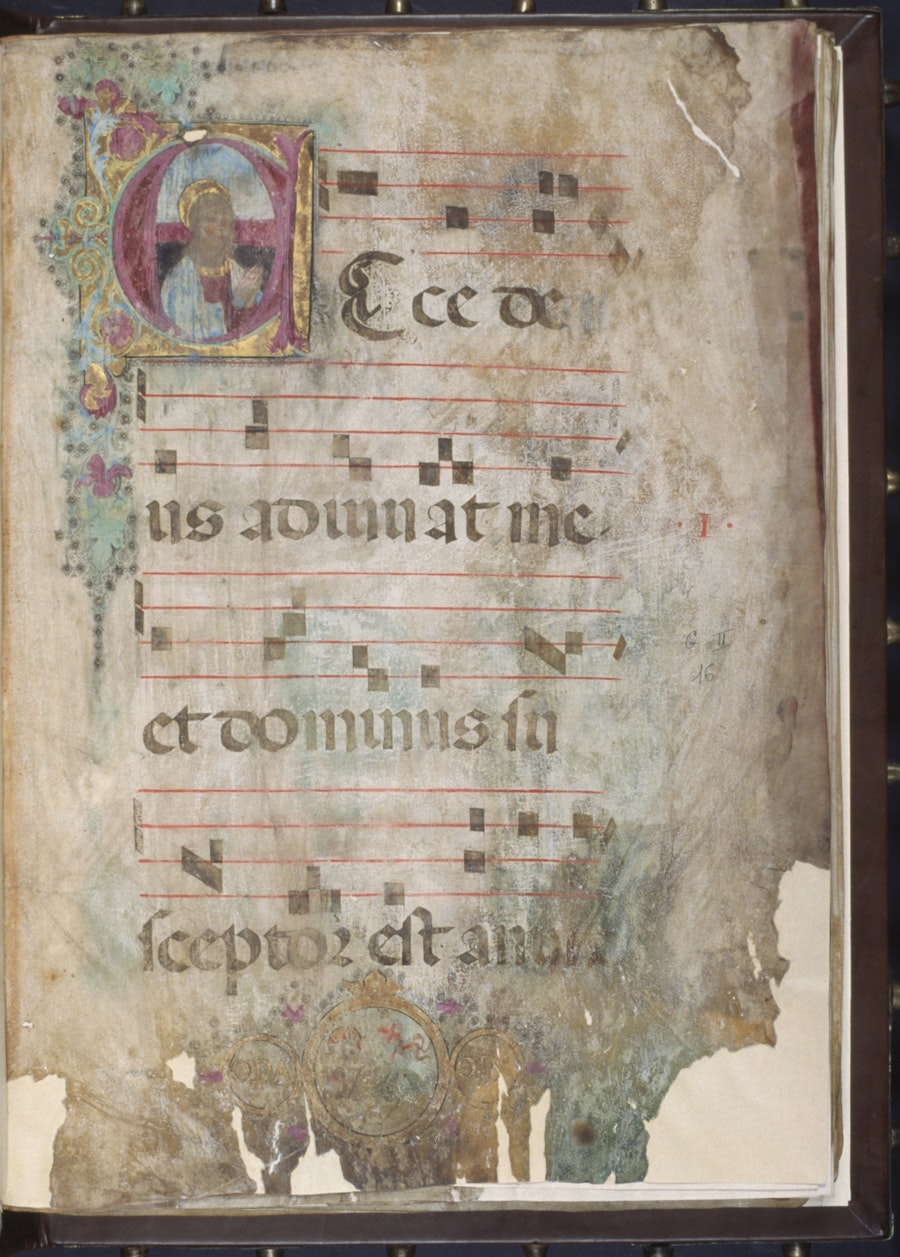 Ecce de
us adiuuat me
et dominus su
sceptor est anim
· I ·
G II
16
ORA